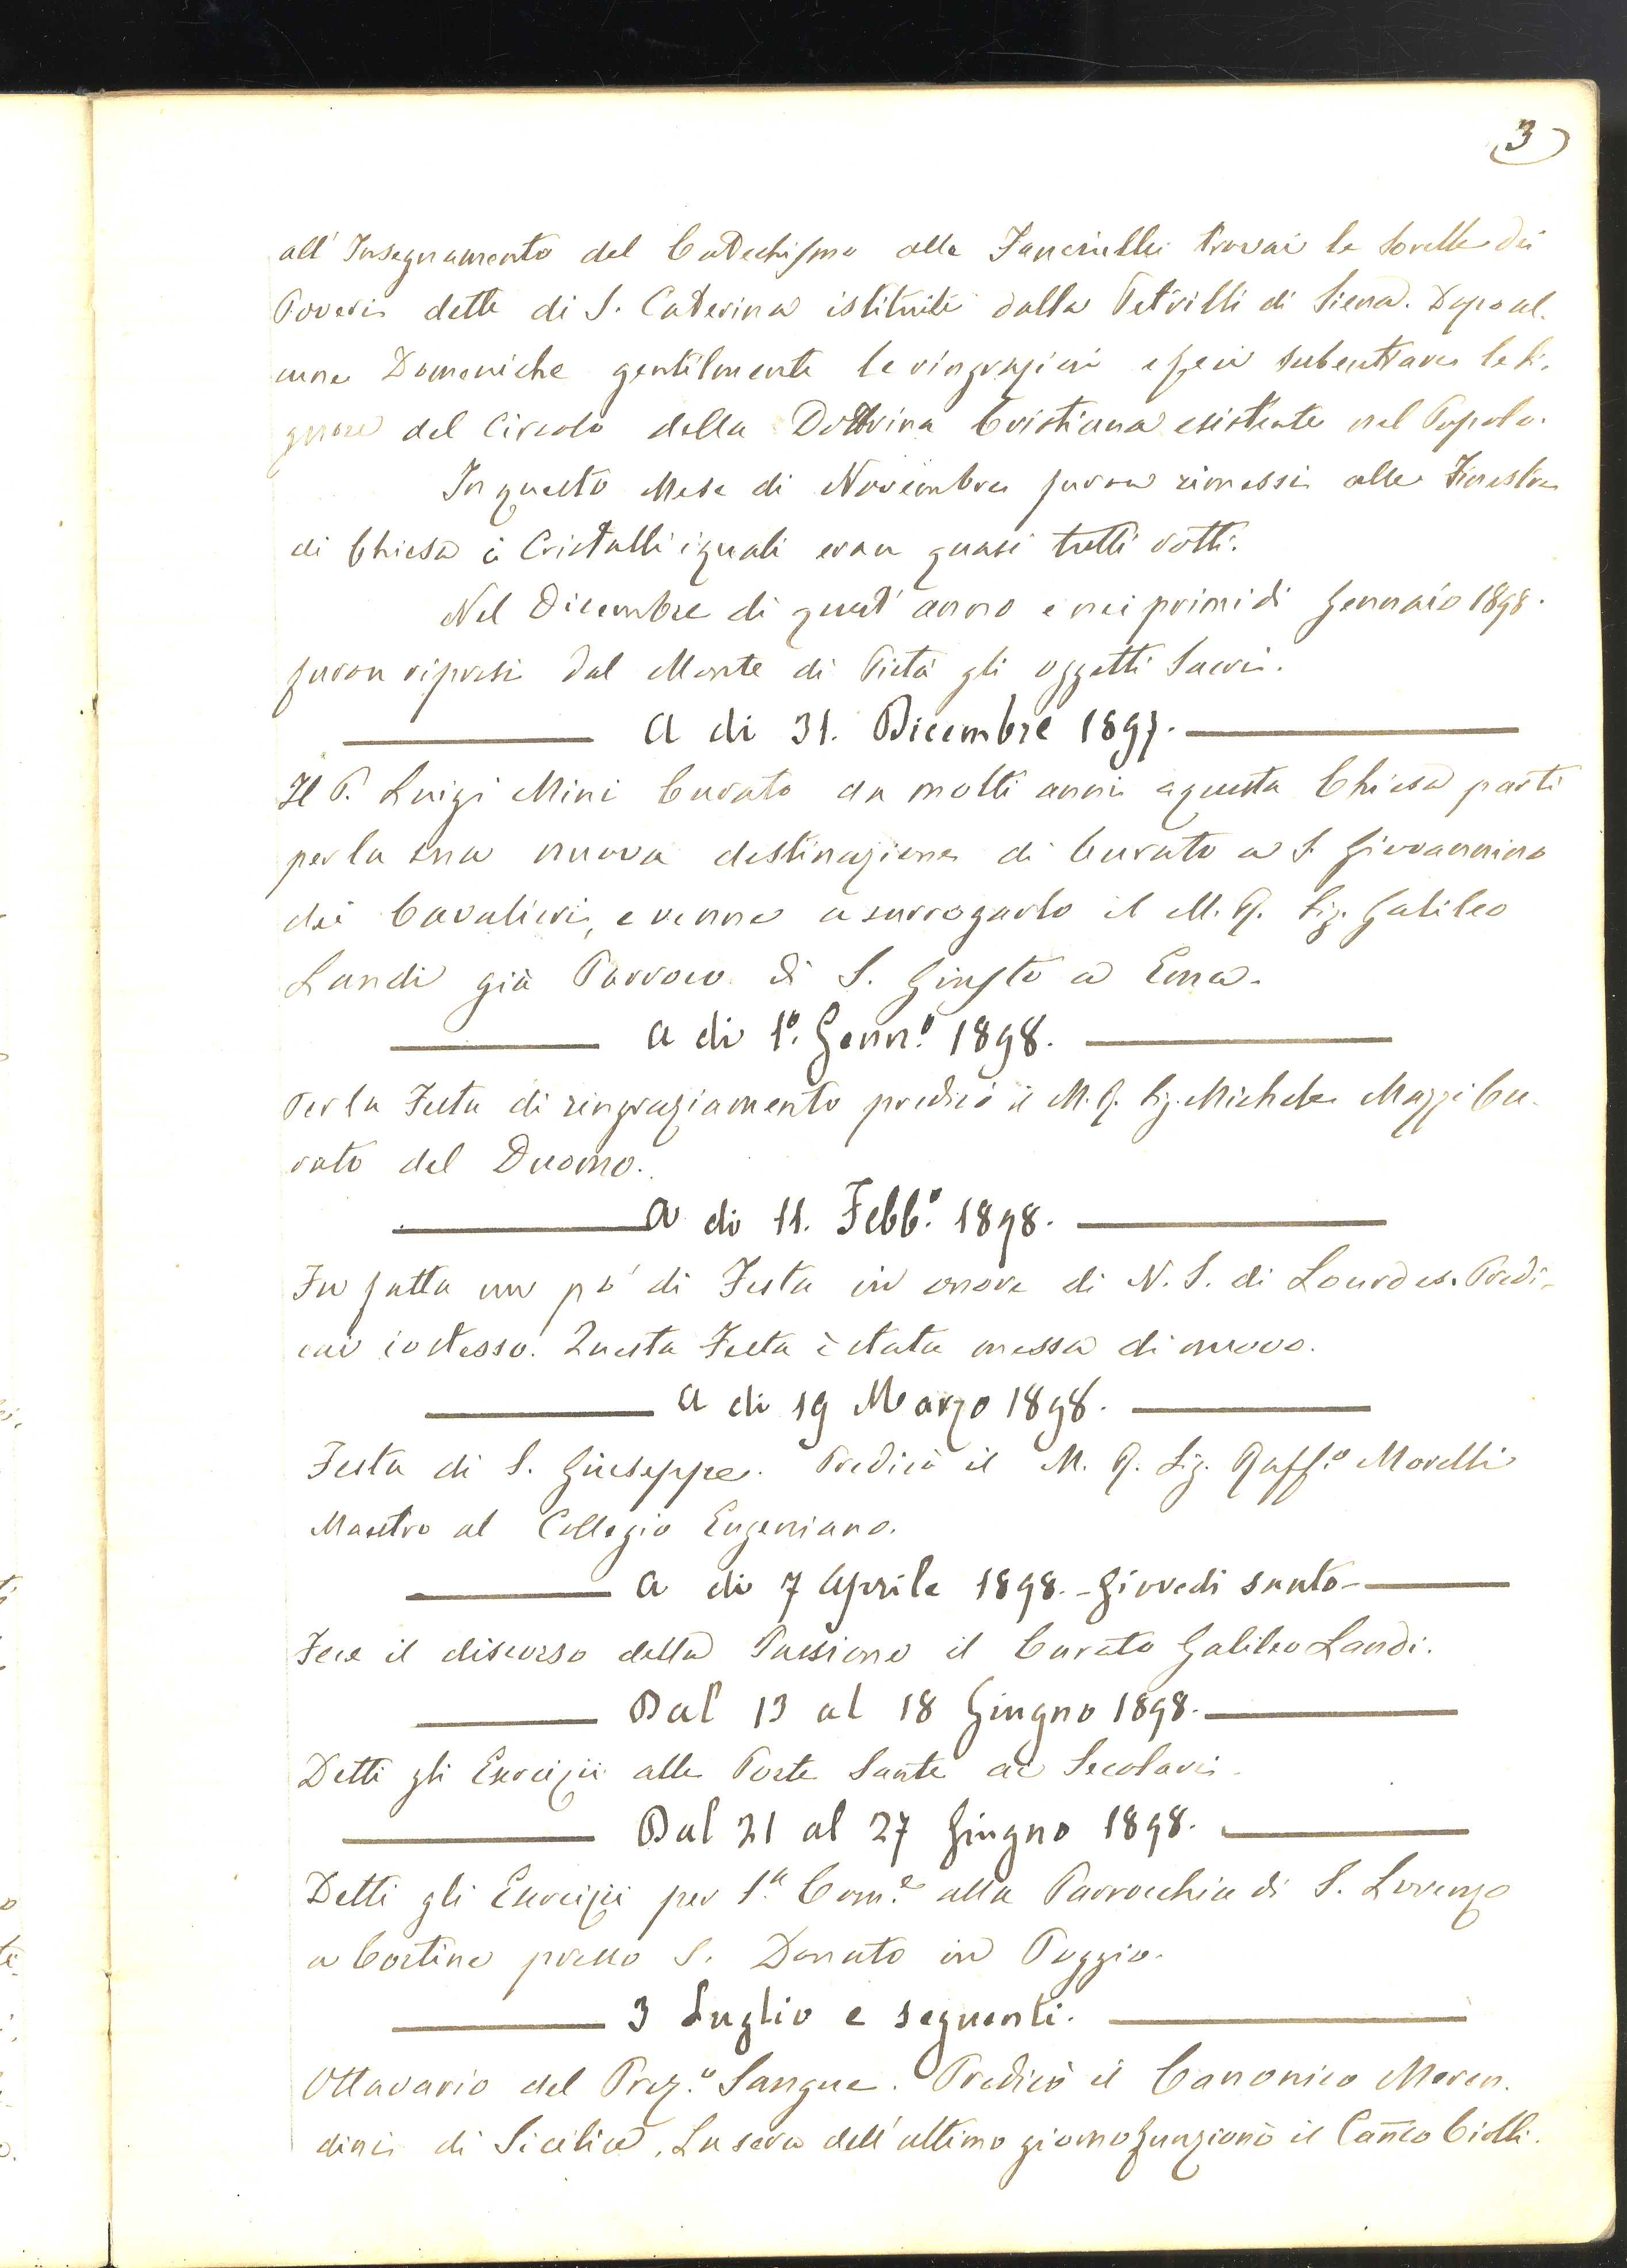 3
all' Insegnamento del Catechismo alle Fanciulle trovai le Sorelle dei
Poveri dette di S. Caterina istituite dalla Petrilli di Siena. Dopo al-
cune Domeniche gentilmente le ringraziai e feci subentrare le Si-
gnore del Circolo della Dottrina Cristiana esistente nel Popolo.
In questo Mese di Novembre furon rimessi alle Finestre
di Chiesa i Cristalli i quali eran quasi tutti rotti.
Nel Dicembre di quest' anno e nei primi di Gennaio 1898.
furon ripresi dal Monte di Pietà gli oggetti Sacri.
A di 31. Dicembre 1897.
Il P. Luigi Mini Curato da molti anni a questa Chiesa partì
per la sua nuova destinazione di Curato a S. Giovannino
dei Cavalieri, e venne a surrogarlo il M. R. Sig. Galileo
Landi già Parroco di S. Giusto a Ema.
A di 1º. Genn.º 1898.
Per la Festa di ringraziamento predicò il M. R. Sig. Michele Mazzi Cu-
rato del Duomo.
A di 11. Febb.º 1898.
Fu fatta un pò di Festa in onore di N. S. di Lourdes. Predi-
cai io stesso. Questa Festa è stata messa di nuovo.
A di 19 Marzo 1898.
Festa di S. Giuseppe. Predicò il M. R. Sig. Raff.º Morelli
Maestro al Collegio Eugeniano.
A di 7 Aprile 1898. - Giovedi santo -
Fece il discorso della Passione il Curato Galileo Landi.
Dal 13 al 18 Giugno 1898.
Detti gli Esercizii alle Porte Sante ai Secolari.
Dal 21 al 27 Giugno 1898.
Detti gli Esercizii per 1.ª Com.e alla Parrocchia di S. Lorenzo
a Cortine presso S. Donato in Poggio.
3 Luglio e seguenti.
Ottavario del Prez.º Sangue. Predicò il Canonico Meren-
dini di Sicilia. La sera dell' ultimo giorno funzionò il Canco Ciolli.